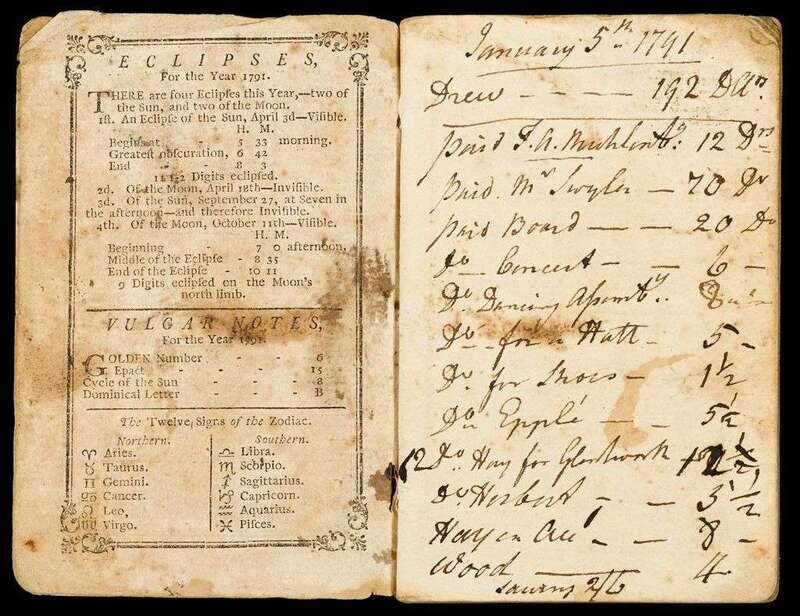 ECLIPSES,
For the Year 1791.
THERE are four Eclipſes this Year,—two of
the Sun, and two of the Moon.
1ſt. An Eclipſe of the Sun, April 3d—Viſible.
H. M.
Begins at - 5 33 morning.
Greateſt obſcuration, 6 42
End - - 8 3
11 1-2 Digits eclipſed.
2d. Of the Moon, April 18th—Inviſible.
3d. Of the Sun, September 27, at Seven in
the afternoon—and therefore Inviſible.
4th. Of the Moon, October 11th—Viſible.
H. M.
Beginning - 7 0 afternoon,
Middle of the Eclipſe - 8 35
End of the Eclipſe - 10 11
9 Digits eclipſed on the Moon's
north limb.
VULGAR NOTES,
For the Year 1791.
GOLDEN Number - - - 6
Epact - - - - 15
Cycle of the Sun - - - 8
Dominical Letter - - - B
The Twelve Signs of the Zodiac.
Northern. Southern.
♈ Aries. ♎ Libra.
♉ Taurus. ♏ Scorpio.
♊ Gemini. ♐ Sagittarius.
♋ Cancer. ♑ Capricorn.
♌ Leo, ♒ Aquarius.
♍ Virgo. ♓ Piſces.
January 5th 1791
Drew - - - - 192
paid F. A. 12 Drs
paid Mr — 70 Dr
paid Board — 20 Do
Do — Concert — - 6 -
Do Dancing 8
Do for a Hatt - 5 -
Do for Shoes - 1 1/2
Do Epplé - 5 1/2
12 Do Hay for 1/2
Do Herbert - - 5 1/2
- - 8 -
Wood — 4
2/6